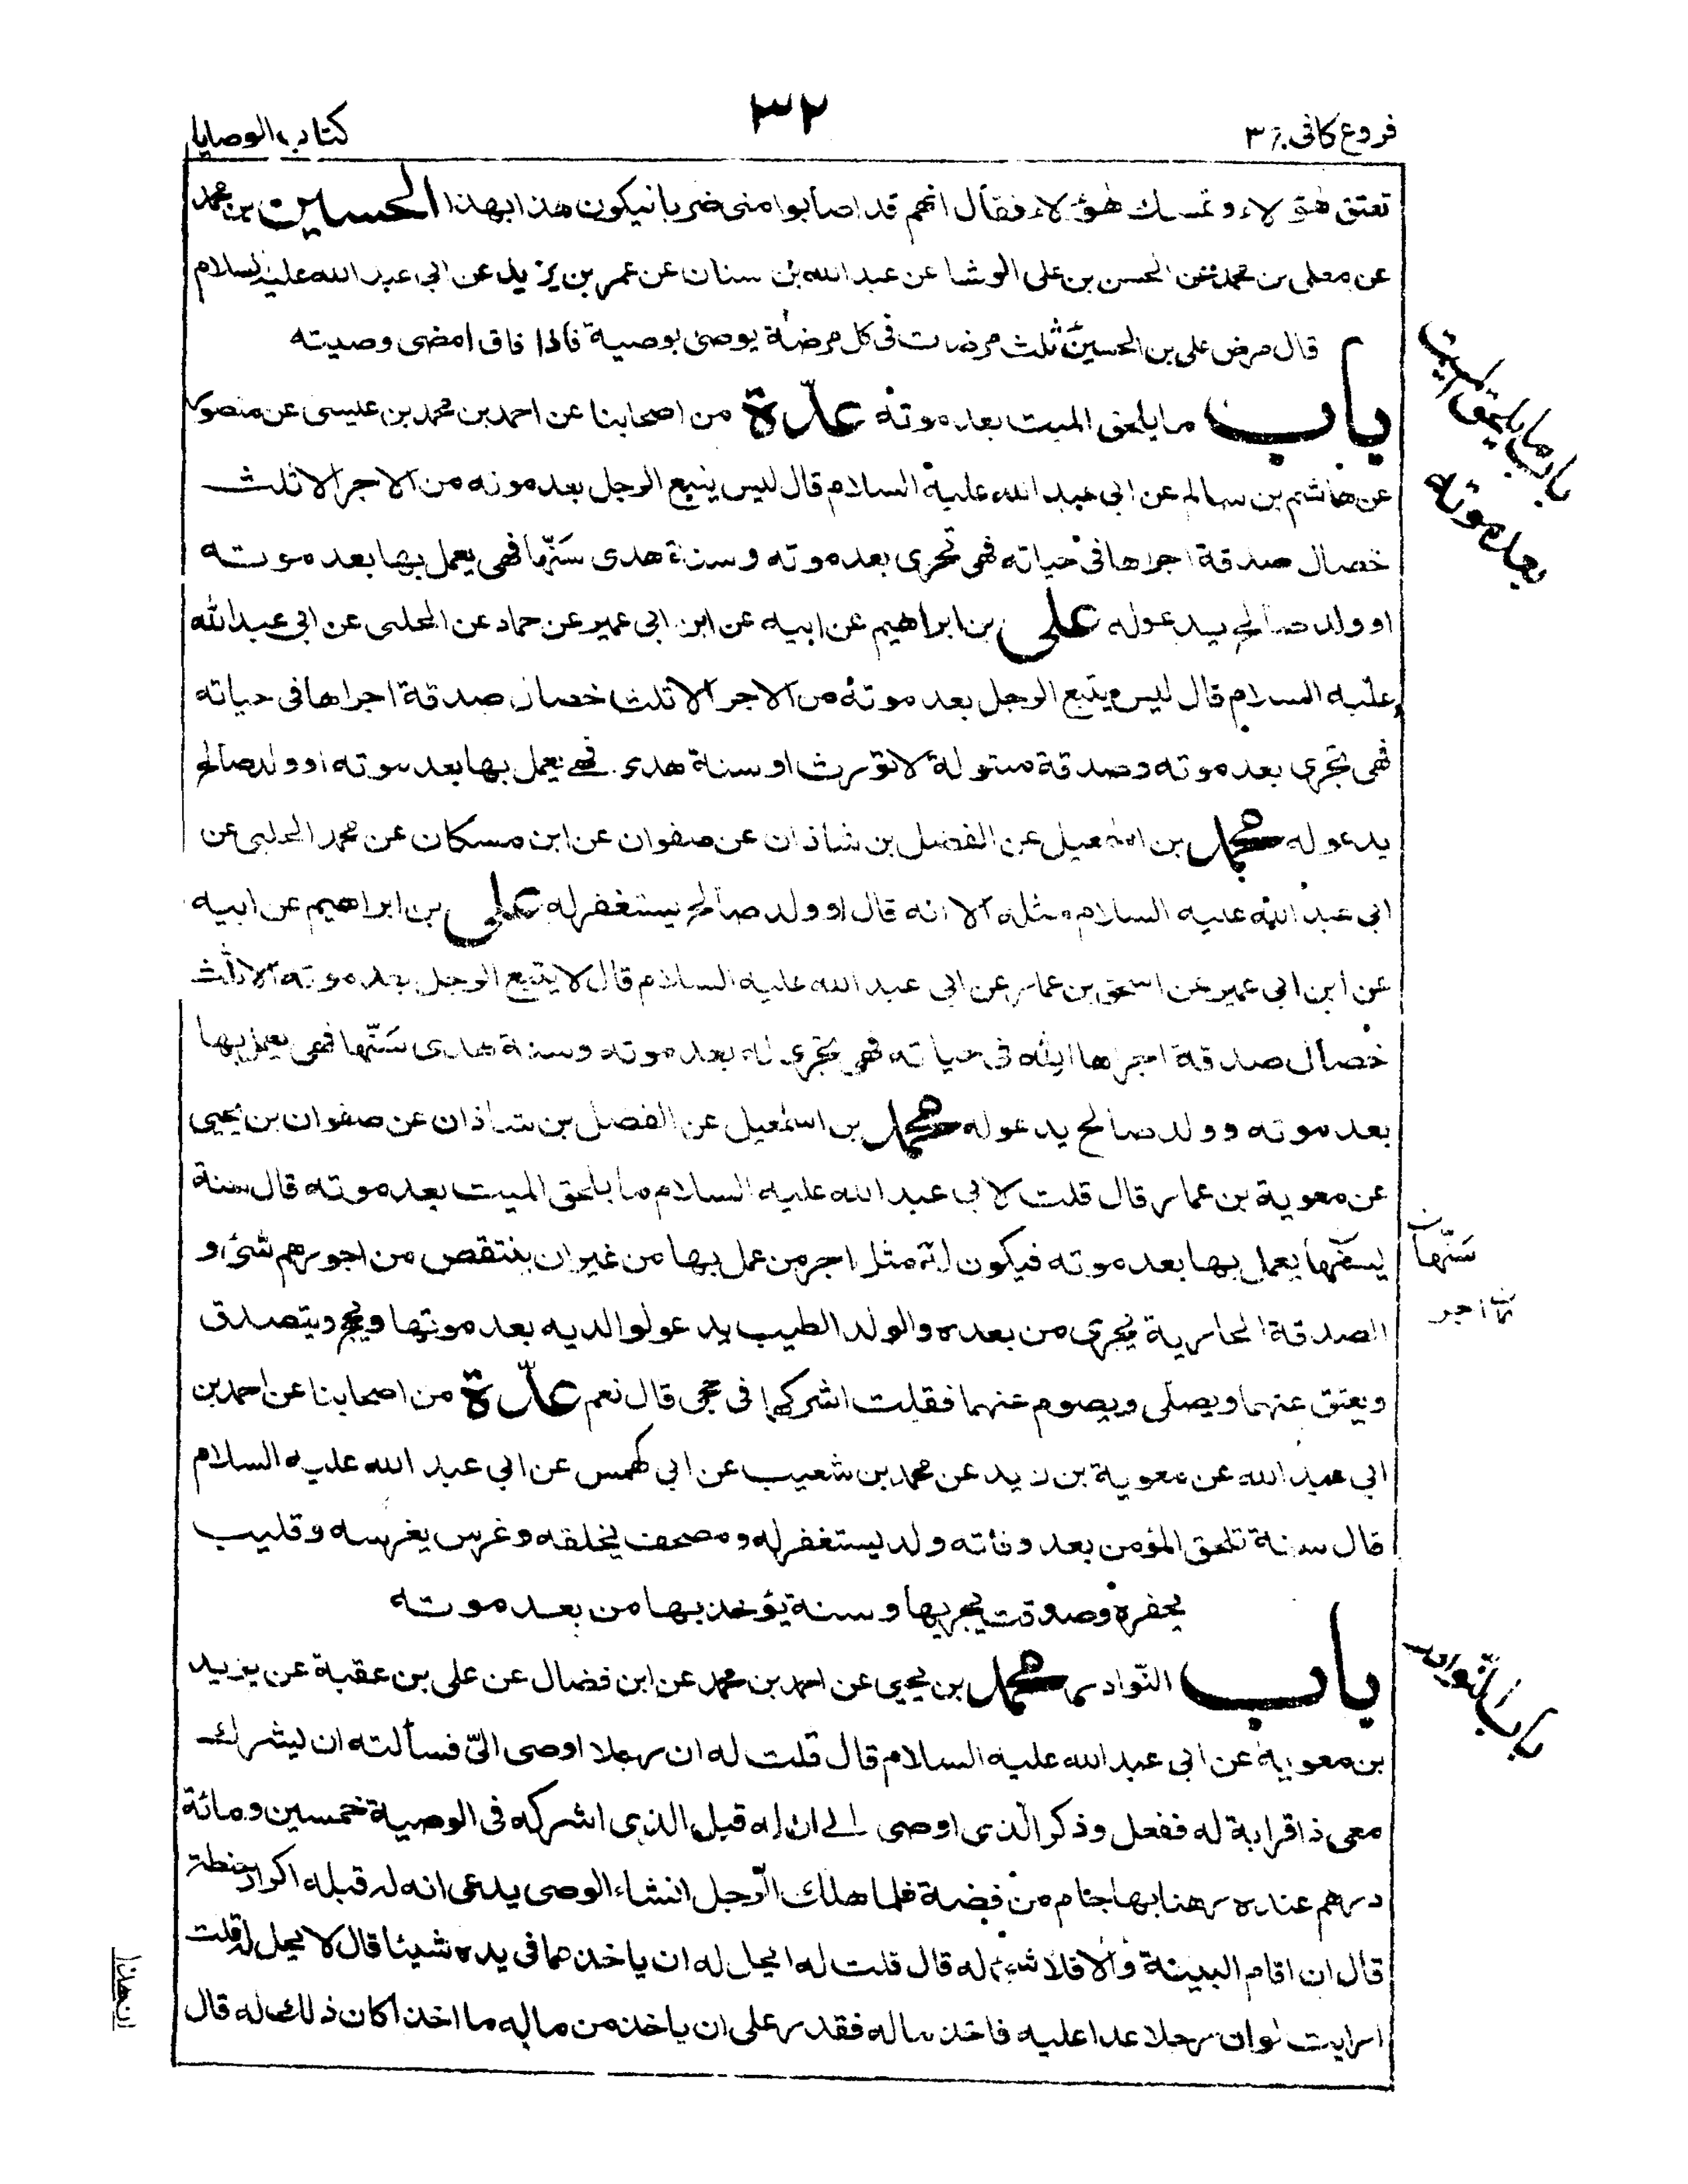 فروع کافی ج ٣
٣٢
کتاب الوصایا
تعتق هؤلاء وتمسك هؤلاء فقال انهم قد اصابوا منی ضربا فیکون هذا بهذا الحسین بن محمد
عن معلی بن محمد عن الحسن بن علی الوشا عن عبد الله بن سنان عن عمر بن یزید عن ابی عبد الله علیه السلام
قال مرض علی بن الحسین ثلث مرضات فی کل مرضة یوصی بوصیة فاذا افاق امضی وصیته
باب ما یلحق المیت بعد موته عدّة من اصحابنا عن احمد بن محمد بن عیسی عن منصور
عن هاشم بن سالم عن ابی عبد الله علیه السلام قال لیس یتبع الرجل بعد موته من الاجر الا ثلث
خصال صدقة اجراها فی حیاته فهی تجری بعد موته وسنة هدی سَنّها فهی یعمل بها بعد موته
او ولد صالح یدعو له علی بن ابراهیم عن ابیه عن ابن ابی عمیر عن حماد عن الحلبی عن ابی عبد الله
علیه السلام قال لیس یتبع الرجل بعد موته من الاجر الا ثلث خصال صدقة اجراها فی حیاته
فهی تجری بعد موته وصدقة مبتولة لا تورث او سنة هدی فهی یعمل بها بعد موته او ولد صالح
یدعو له محمد بن اسمعیل عن الفضل بن شاذان عن صفوان عن ابن مسکان عن محمد الحلبی عن
ابی عبد الله علیه السلام مثله الا انه قال او ولد صالح یستغفر له علی بن ابراهیم عن ابیه
عن ابن ابی عمیر عن اسحق بن عمار عن ابی عبد الله علیه السلام قال لا یتبع الرجل بعد موته الا ثلث
خصال صدقة اجراها الله فی حیاته فهی تجری له بعد موته وسنة هدی سَنّها فهی یعمل بها
بعد موته وولد صالح یدعو له محمد بن اسمعیل عن الفضل بن شاذان عن صفوان بن یحیی
عن معویة بن عمار قال قلت لابی عبد الله علیه السلام ما یلحق المیت بعد موته قال سنة
یسنّها یعمل بها بعد موته فیکون له مثل اجر من عمل بها من غیر ان ینتقص من اجورهم شئ و
الصدقة الجاریة تجری من بعده والولد الطیب یدعو لوالدیه بعد موتها ویحج ویتصدق
ویعتق عنهما ویصلّی ویصوم عنهما فقلت اشرکهما فی حجی قال نعم عدّة من اصحابنا عن احمد بن
ابی عبد الله عن معویة بن زید عن محمد بن شعیب عن ابی کهمس عن ابی عبد الله علیه السلام
قال ستة تلحق المؤمن بعد وفاته ولد یستغفر له ومصحف یخلفه وغرس یغرسه وقلیب
یحفره وصدقة یجریها وسنة یؤخذ بها من بعد موته
باب النّوادر محمد بن یحیی عن احمد بن محمد عن ابن فضال عن علی بن عقبة عن یزید
بن معویة عن ابی عبد الله علیه السلام قال قلت له ان رجلا اوصی الیّ فسألته ان یشرك
معی ذا قرابة له ففعل وذکر الّذی اوصی الی ان له قبل الذی اشرکه فی الوصیة خمسین ومائة
درهم عنده رهنا بها جام من فضة فلما هلك الرّجل انشاء الوصی یدعی انه له قبله اکرار حنطة
قال ان اقام البینة والا فلا شیء له قال قلت له ایحل له ان یاخذ مما فی یده شیئا قال لا یحل له قلت
ارایت لو ان رجلا عدا علیه فاخذ ماله فقدر علی ان یاخذ من ماله ما اخذ اکان ذلك له قال
باب ما یلحق المیت
بعد موته
سَنّها
اجر
باب النّوادر
ان هذا